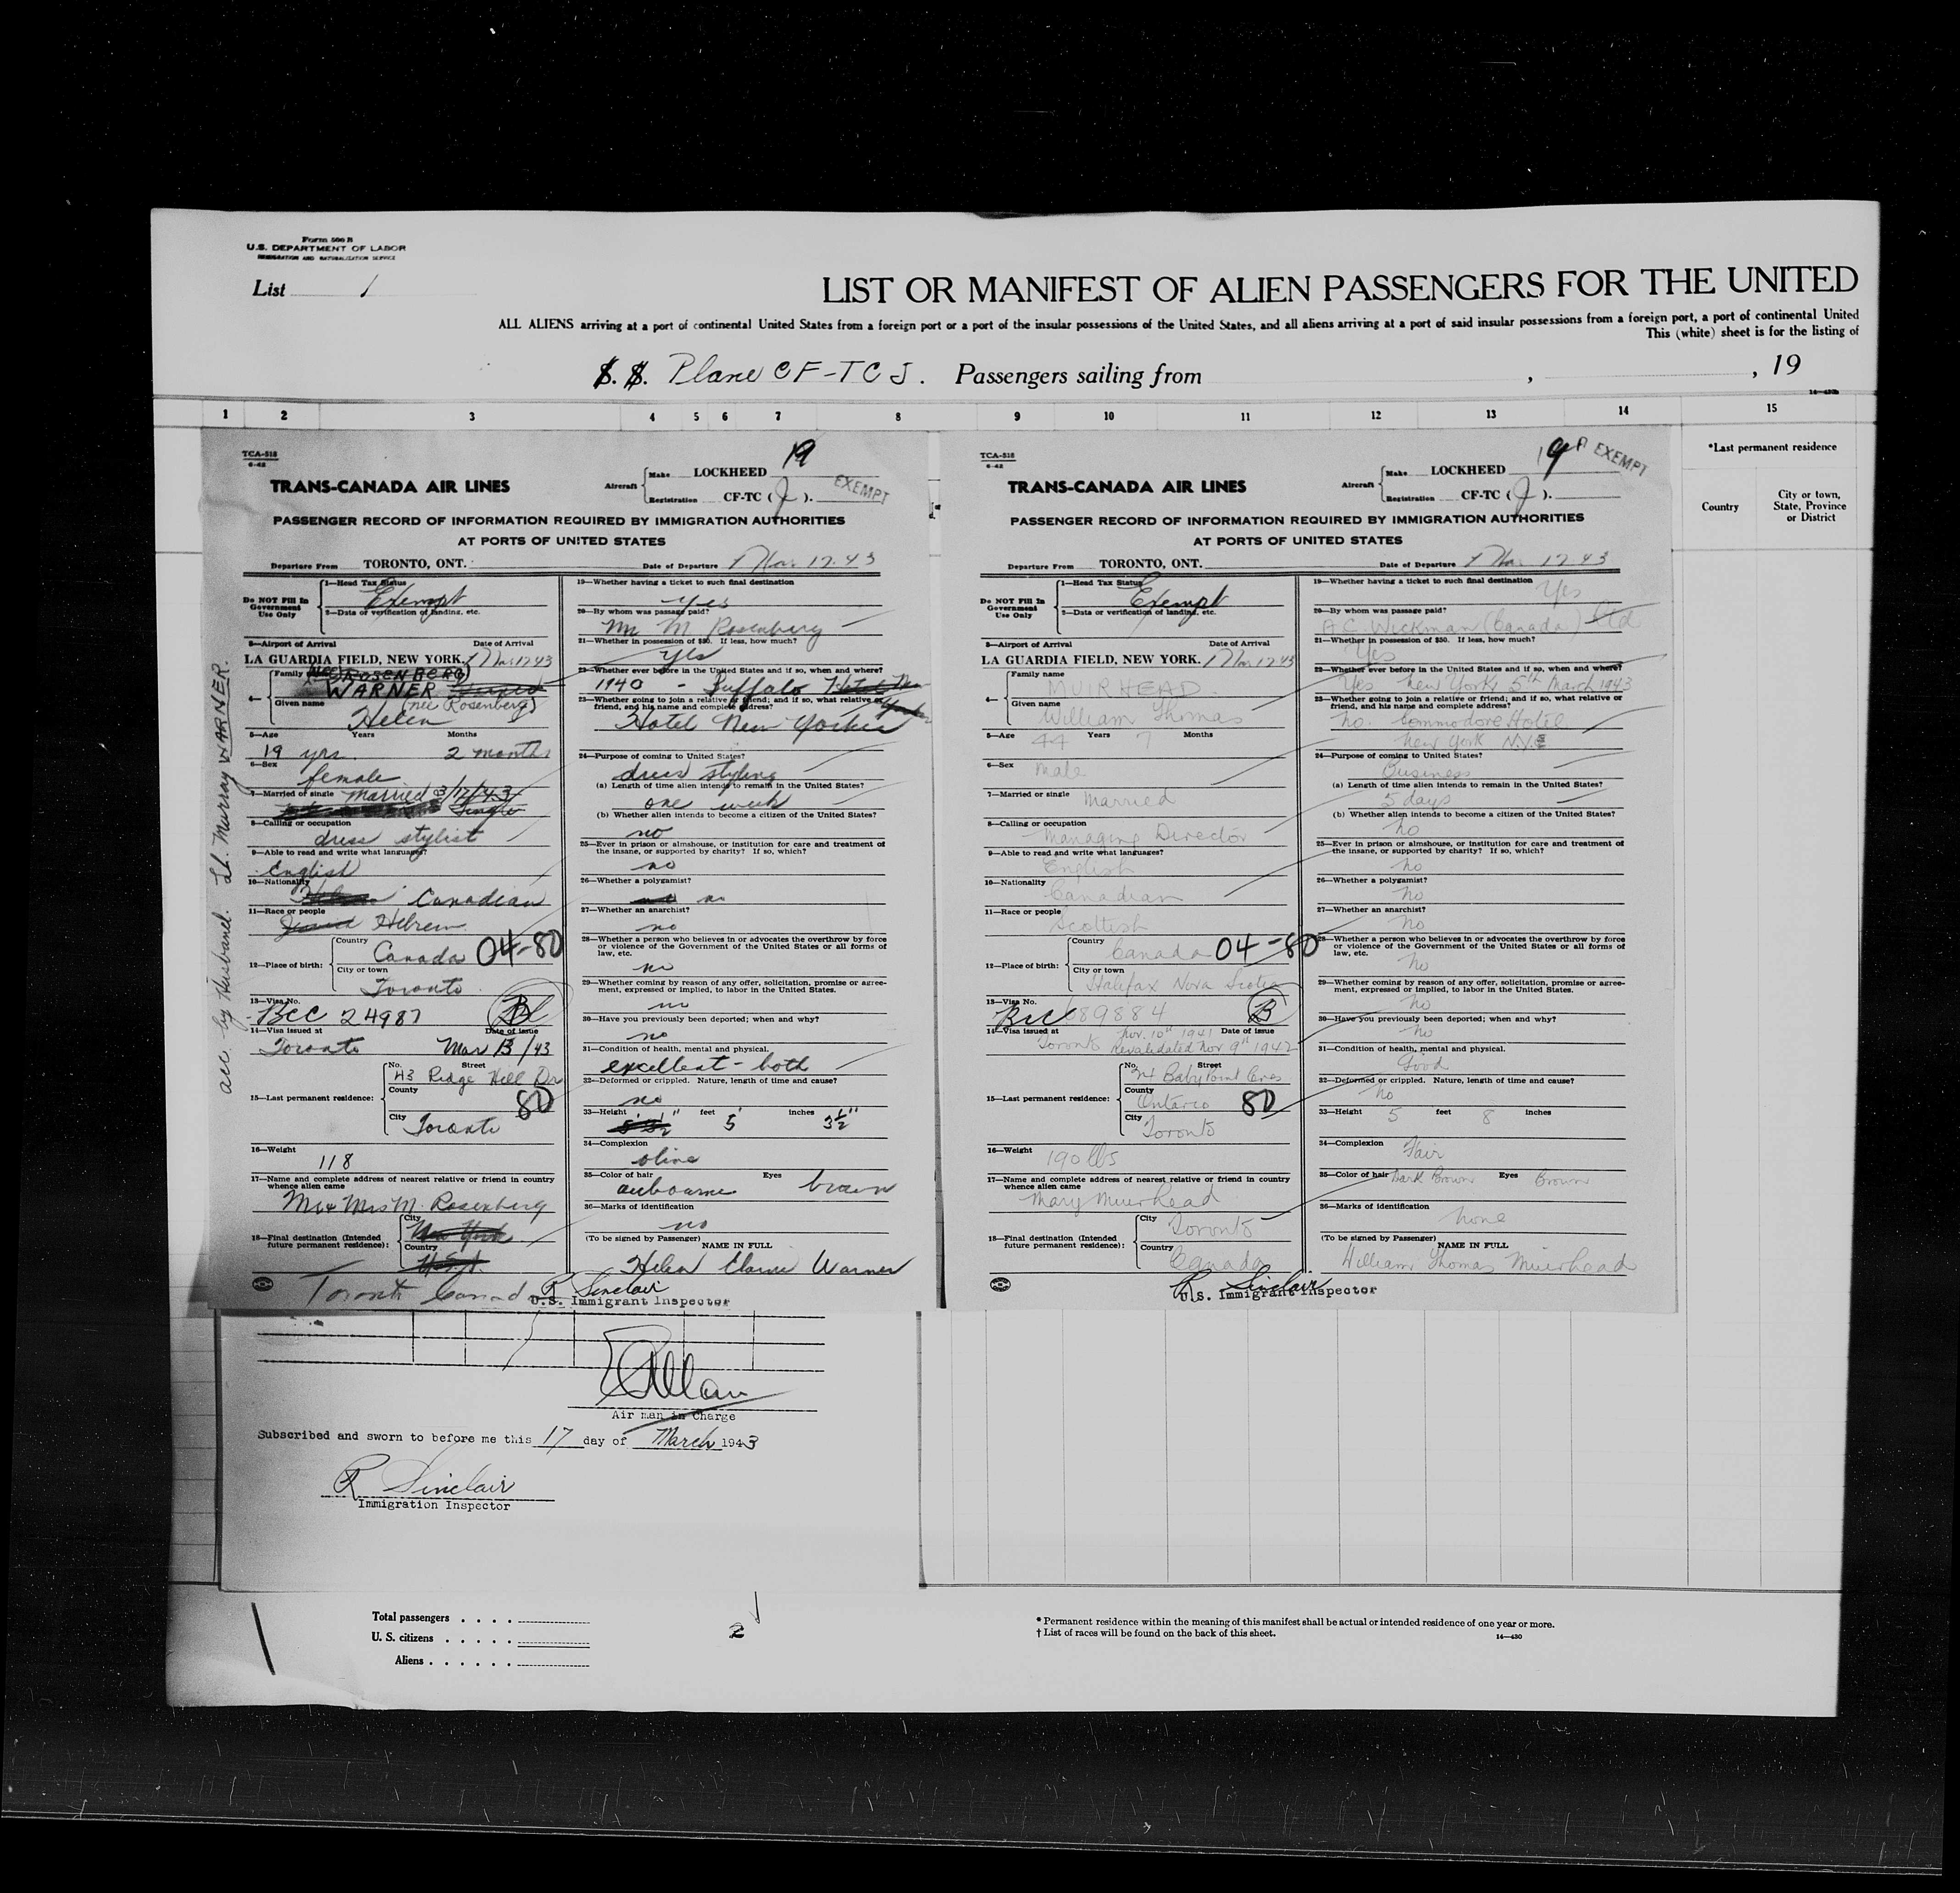 Form 500 B
U.S. DEPARTMENT OF LABOR
IMMIGRATION AND NATURALIZATION SERVICE
List 1
LIST OR MANIFEST OF ALIEN PASSENGERS FOR THE UNITED
ALL ALIENS arriving at a port of continental United States from a foreign port or a port of the insular possessions of the United States, and all aliens arriving at a port of said insular possessions from a foreign port, a port of continental United
This (white) sheet is for the listing of
S. S. Plane CF-TCJ. Passengers sailing from , , 19
1 2 3 4 5 6 7 8 9 10 11 12 13 14 15
*Last permanent residence
Country
City or town, State, Province or District
acc. by Husband. Lt. Murray WARNER.
TCA-518
6-42
19
EXEMPT
Aircraft Make LOCKHEED
Registration CF-TC (J).
TRANS-CANADA AIR LINES
PASSENGER RECORD OF INFORMATION REQUIRED BY IMMIGRATION AUTHORITIES
AT PORTS OF UNITED STATES
Departure From TORONTO, ONT. Date of Departure Mar. 17. 43
Do NOT Fill In Government Use Only
1—Head Tax Status
Exempt
2—Data or verification of landing, etc.
3—Airport of Arrival Date of Arrival
LA GUARDIA FIELD, NEW YORK. Mar 17 43
4— Family name (nee) ROSENBERG
WARNER (nee Rosenberg)
Given name Helen
5—Age Years Months
19 yrs. 2 months
6—Sex
female
7—Married or single Married 3/12/43
Single
8—Calling or occupation
dress stylist
9—Able to read and write what languages?
English
10—Nationality
Canadian
11—Race or people
Hebrew
12—Place of birth: Country
Canada 04-80
City or town
Toronto
13—Visa No.
BCC 24987 B
14—Visa issued at Date of issue
Toronto Mar 13/43
15—Last permanent residence: No. Street
43 Ridge Hill Dr
County
80
City Toronto
16—Weight
118
17—Name and complete address of nearest relative or friend in country whence alien came
Mr & Mrs M. Rosenberg
18—Final destination (Intended future permanent residence): City
New York
Country
U.S.A.
Toronto Canada
19—Whether having a ticket to such final destination
yes
20—By whom was passage paid?
Mr M. Rosenberg
21—Whether in possession of $50. If less, how much?
yes
22—Whether ever before in the United States and if so, when and where?
1940 - Buffalo
23—Whether going to join a relative or friend; and if so, what relative or friend, and his name and complete address?
Hotel New Yorker
24—Purpose of coming to United States?
dress styling
(a) Length of time alien intends to remain in the United States?
one week
(b) Whether alien intends to become a citizen of the United States?
no
25—Ever in prison or almshouse, or institution for care and treatment of the insane, or supported by charity? If so, which?
no
26—Whether a polygamist?
no
27—Whether an anarchist?
no
28—Whether a person who believes in or advocates the overthrow by force or violence of the Government of the United States or all forms of law, etc.
no
29—Whether coming by reason of any offer, solicitation, promise or agreement, expressed or implied, to labor in the United States.
no
30—Have you previously been deported; when and why?
no
31—Condition of health, mental and physical.
excellent - both
32—Deformed or crippled. Nature, length of time and cause?
no
33—Height feet inches
5' 3½"
34—Complexion
olive
35—Color of hair Eyes
aubourne brown
36—Marks of identification
no
(To be signed by Passenger) NAME IN FULL
Helen Elaine Warner
R Sinclair
U.S. Immigrant Inspector
TCA-518
6-42
19
EXEMPT
Aircraft Make LOCKHEED
Registration CF-TC (J).
TRANS-CANADA AIR LINES
PASSENGER RECORD OF INFORMATION REQUIRED BY IMMIGRATION AUTHORITIES
AT PORTS OF UNITED STATES
Departure From TORONTO, ONT. Date of Departure Mar. 17 43
Do NOT Fill In Government Use Only
1—Head Tax Status
Exempt
2—Data or verification of landing, etc.
3—Airport of Arrival Date of Arrival
LA GUARDIA FIELD, NEW YORK. Mar 17 43
4— Family name
MUIRHEAD
Given name
William Thomas
5—Age 44 Years 7 Months
6—Sex
Male
7—Married or single Married
8—Calling or occupation
Managing Director
9—Able to read and write what languages?
English
10—Nationality
Canadian
11—Race or people
Scottish
12—Place of birth: Country
Canada 04-80
City or town
Halifax Nova Scotia
13—Visa No.
BCC 689884 B
14—Visa issued at Nov. 10th 1941 Date of issue
Toronto Revalidated Nov 9th 1942
15—Last permanent residence: No. Street
34 Baby Point Cres
County
Ontario 80
City
Toronto
16—Weight
190 lbs
17—Name and complete address of nearest relative or friend in country whence alien came
Mary Muirhead
18—Final destination (Intended future permanent residence): City
Toronto
Country
Canada
19—Whether having a ticket to such final destination
Yes
20—By whom was passage paid?
A.C. Wickman (Canada) Ltd
21—Whether in possession of $50. If less, how much?
Yes
22—Whether ever before in the United States and if so, when and where?
Yes New York 5th March 1943
23—Whether going to join a relative or friend; and if so, what relative or friend, and his name and complete address?
no. Commodore Hotel
New York N.Y.
24—Purpose of coming to United States?
Business
(a) Length of time alien intends to remain in the United States?
5 days
(b) Whether alien intends to become a citizen of the United States?
no
25—Ever in prison or almshouse, or institution for care and treatment of the insane, or supported by charity? If so, which?
no
26—Whether a polygamist?
No
27—Whether an anarchist?
No
28—Whether a person who believes in or advocates the overthrow by force or violence of the Government of the United States or all forms of law, etc.
No
29—Whether coming by reason of any offer, solicitation, promise or agreement, expressed or implied, to labor in the United States.
no
30—Have you previously been deported; when and why?
no
31—Condition of health, mental and physical.
Good
32—Deformed or crippled. Nature, length of time and cause?
no
33—Height 5 feet 8 inches
34—Complexion
Fair
35—Color of hair Dark Brown Eyes Brown
36—Marks of identification
None
(To be signed by Passenger) NAME IN FULL
William Thomas Muirhead
R Sinclair
U.S. Immigrant Inspector
Air man in Charge
Subscribed and sworn to before me this 17 day of March 1943
R Sinclair
Immigration Inspector
Total passengers . . . .
U. S. citizens . . . . .
Aliens . . . . . .
2
* Permanent residence within the meaning of this manifest shall be actual or intended residence of one year or more.
† List of races will be found on the back of this sheet.
14—430